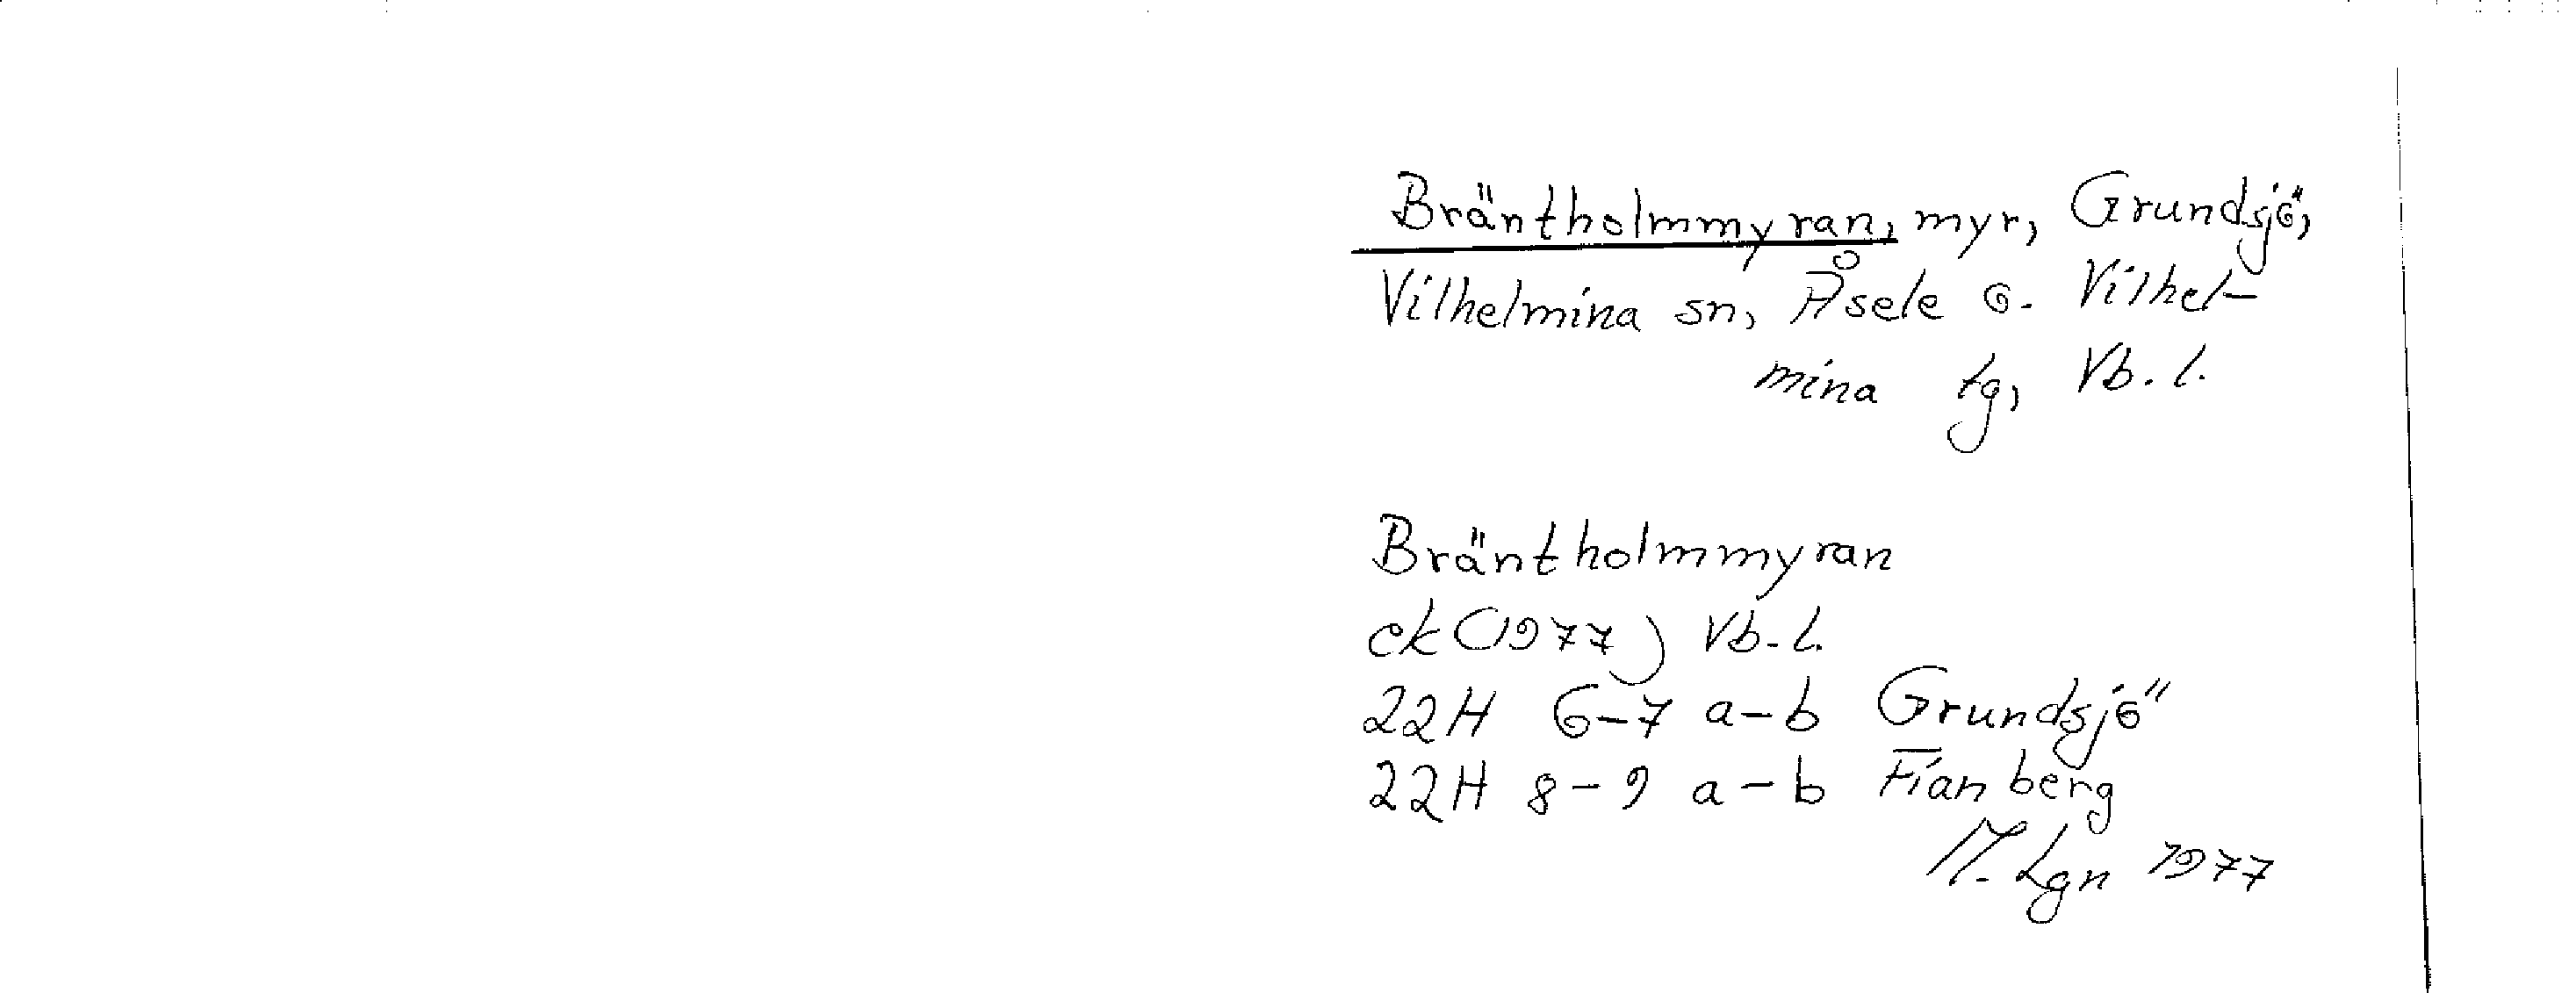 Bräntholmmyran, myr, Grundsjö,
Vilhelmina sn, Åsele o. Vilhel-
mina tg, Vb. l.
Bräntholmmyran
ek (1977) Vb. l.
22H 6-7 a-b Grundsjö
22H 8-9 a-b Fianberg
M. Lgn 1977